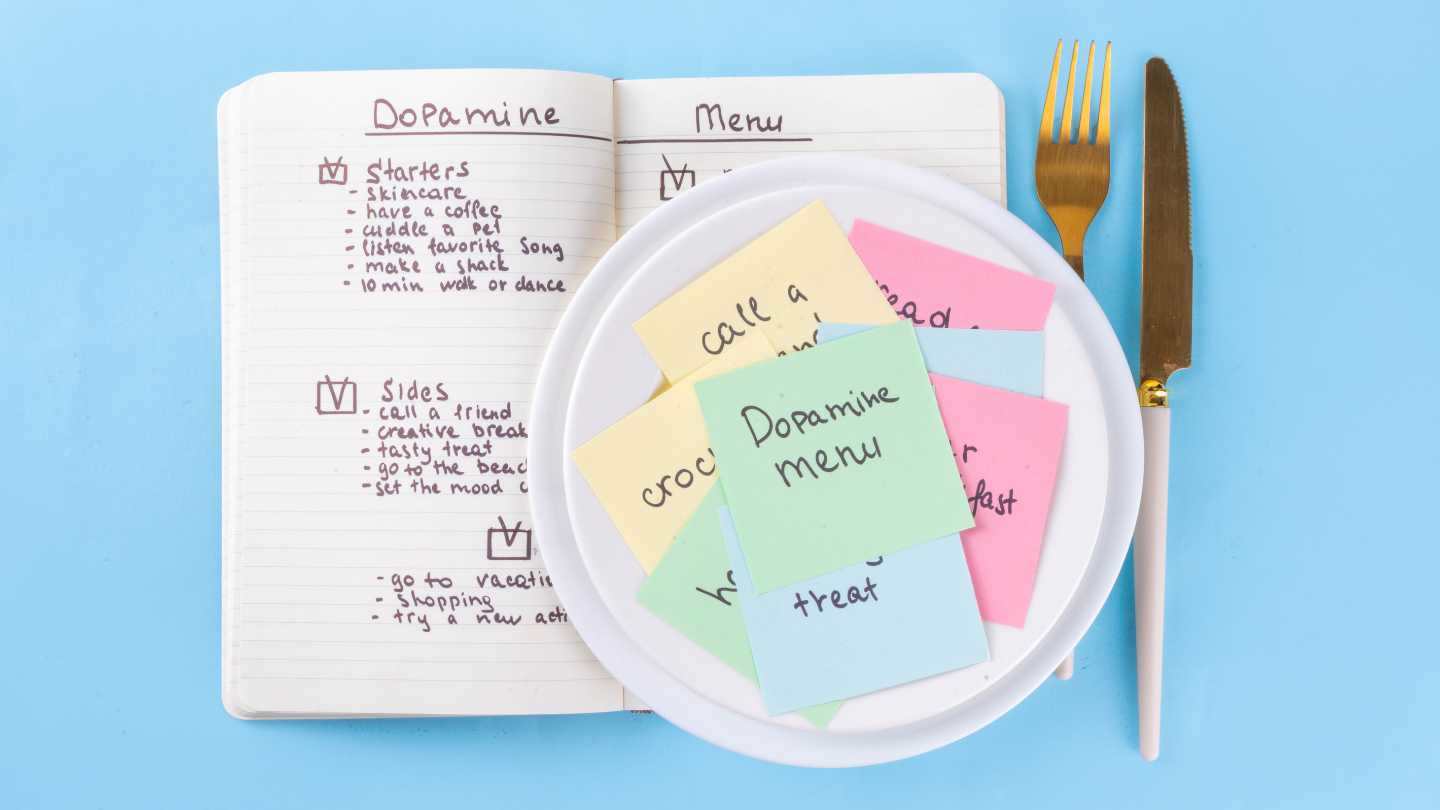 Dopamine
Starters
- skincare
- have a coffee
- cuddle a pet
- listen favorite song
- make a shack
- 10 min walk or dance
Sides
- call a friend
- creative break
- tasty treat
- go to the beac
- set the mood
- go to vacati
- shopping
- try a new acti
Menu
call a
read
croc
Dopamine
menu
fast
treat